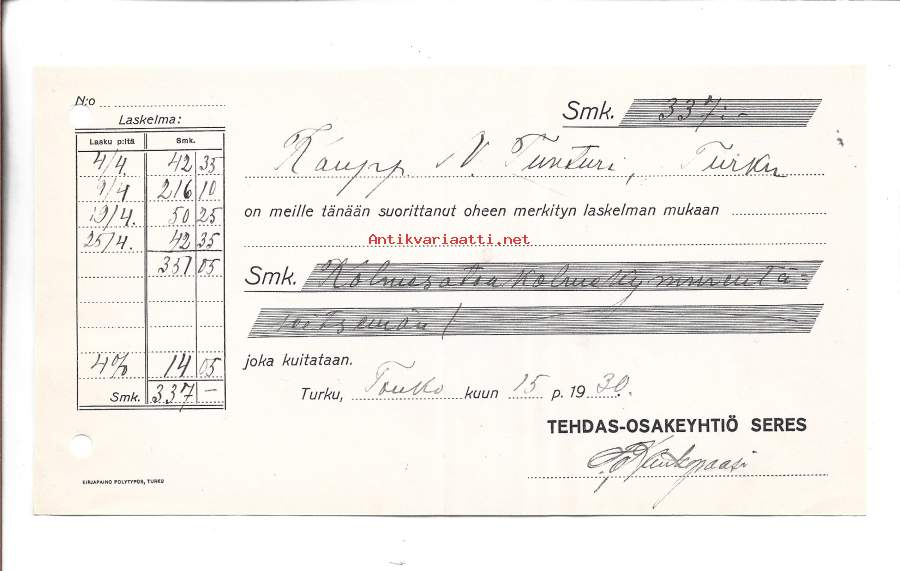 N:o
Laskelma:
Lasku p:ltä Smk.
4/4. 42 35
9/4 216 10
19/4. 50 25
25/4. 42 35
351 05
4% 14 05
Smk. 337 —
Smk. 337:-
Kaupp. V. Tunturi, Turku
on meille tänään suorittanut oheen merkityn laskelman mukaan
Antikvariaatti.net
Smk. Kolmesataa kolmekymmentä-
seitsemän /
joka kuitataan.
Turku, Touko kuun 15 p. 1930.
TEHDAS-OSAKEYHTIÖ SERES
KIRJAPAINO POLYTYPOS, TURKU